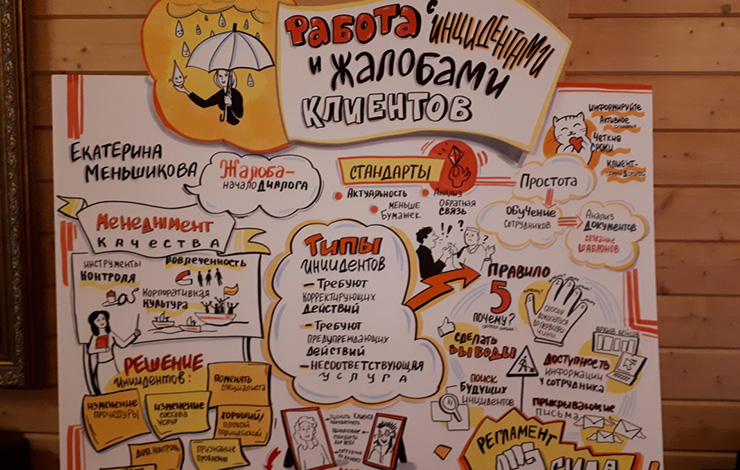 Работа с
инцидентами
и жалобами
клиентов
Екатерина
Меньшикова
Жалоба-
начало диалога
Стандарты
Актуальность
Меньше
бумажек
Анализ
Обратная
связь
Информируйте
Активное
Четкие
сроки
Клиент-
Простота
Обучение
сотрудников
Анализ
документов
создание
шаблонов
Менеджмент
качества
Инструменты
контроля
Вовлеченность
Корпоративная
культура
Типы
инцидентов
– Требуют
корректирующих
действий
– Требуют
предупреждающих
действий
– Несоответствующая
услуга
Правило
5
почему?
способ
докопаться
до первопри-
чины
Сделать
выводы
Поиск
будущих
инцидентов
Доступность
информации
у сотрудника
Архив кейсов
Прикрывающие
письма
Решение
инцидентов:
Поменять
специалиста
изменение
процедуры
изменение
состава
услуг
хороший/
плохой
полицейский
Доп контроль
признание
проблемы
Регламент
Сила